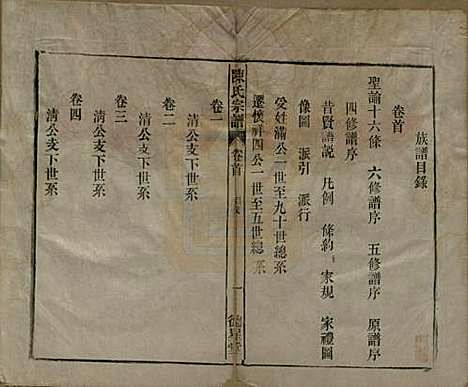 族譜目錄
卷首
聖諭十六條 六修譜序 五修譜序 原譜序
四修譜序
昔賢譜說 凡例 條約 家規 家禮圖
像圖 派引 派行
受姓滿公一世至九十世總系
遷懷祥四公一世至五世總系
陳氏宗譜 卷首 目錄 一 德星堂
卷一
清公支下世系
卷二
清公支下世系
卷三
清公支下世系
卷四
清公支下世系